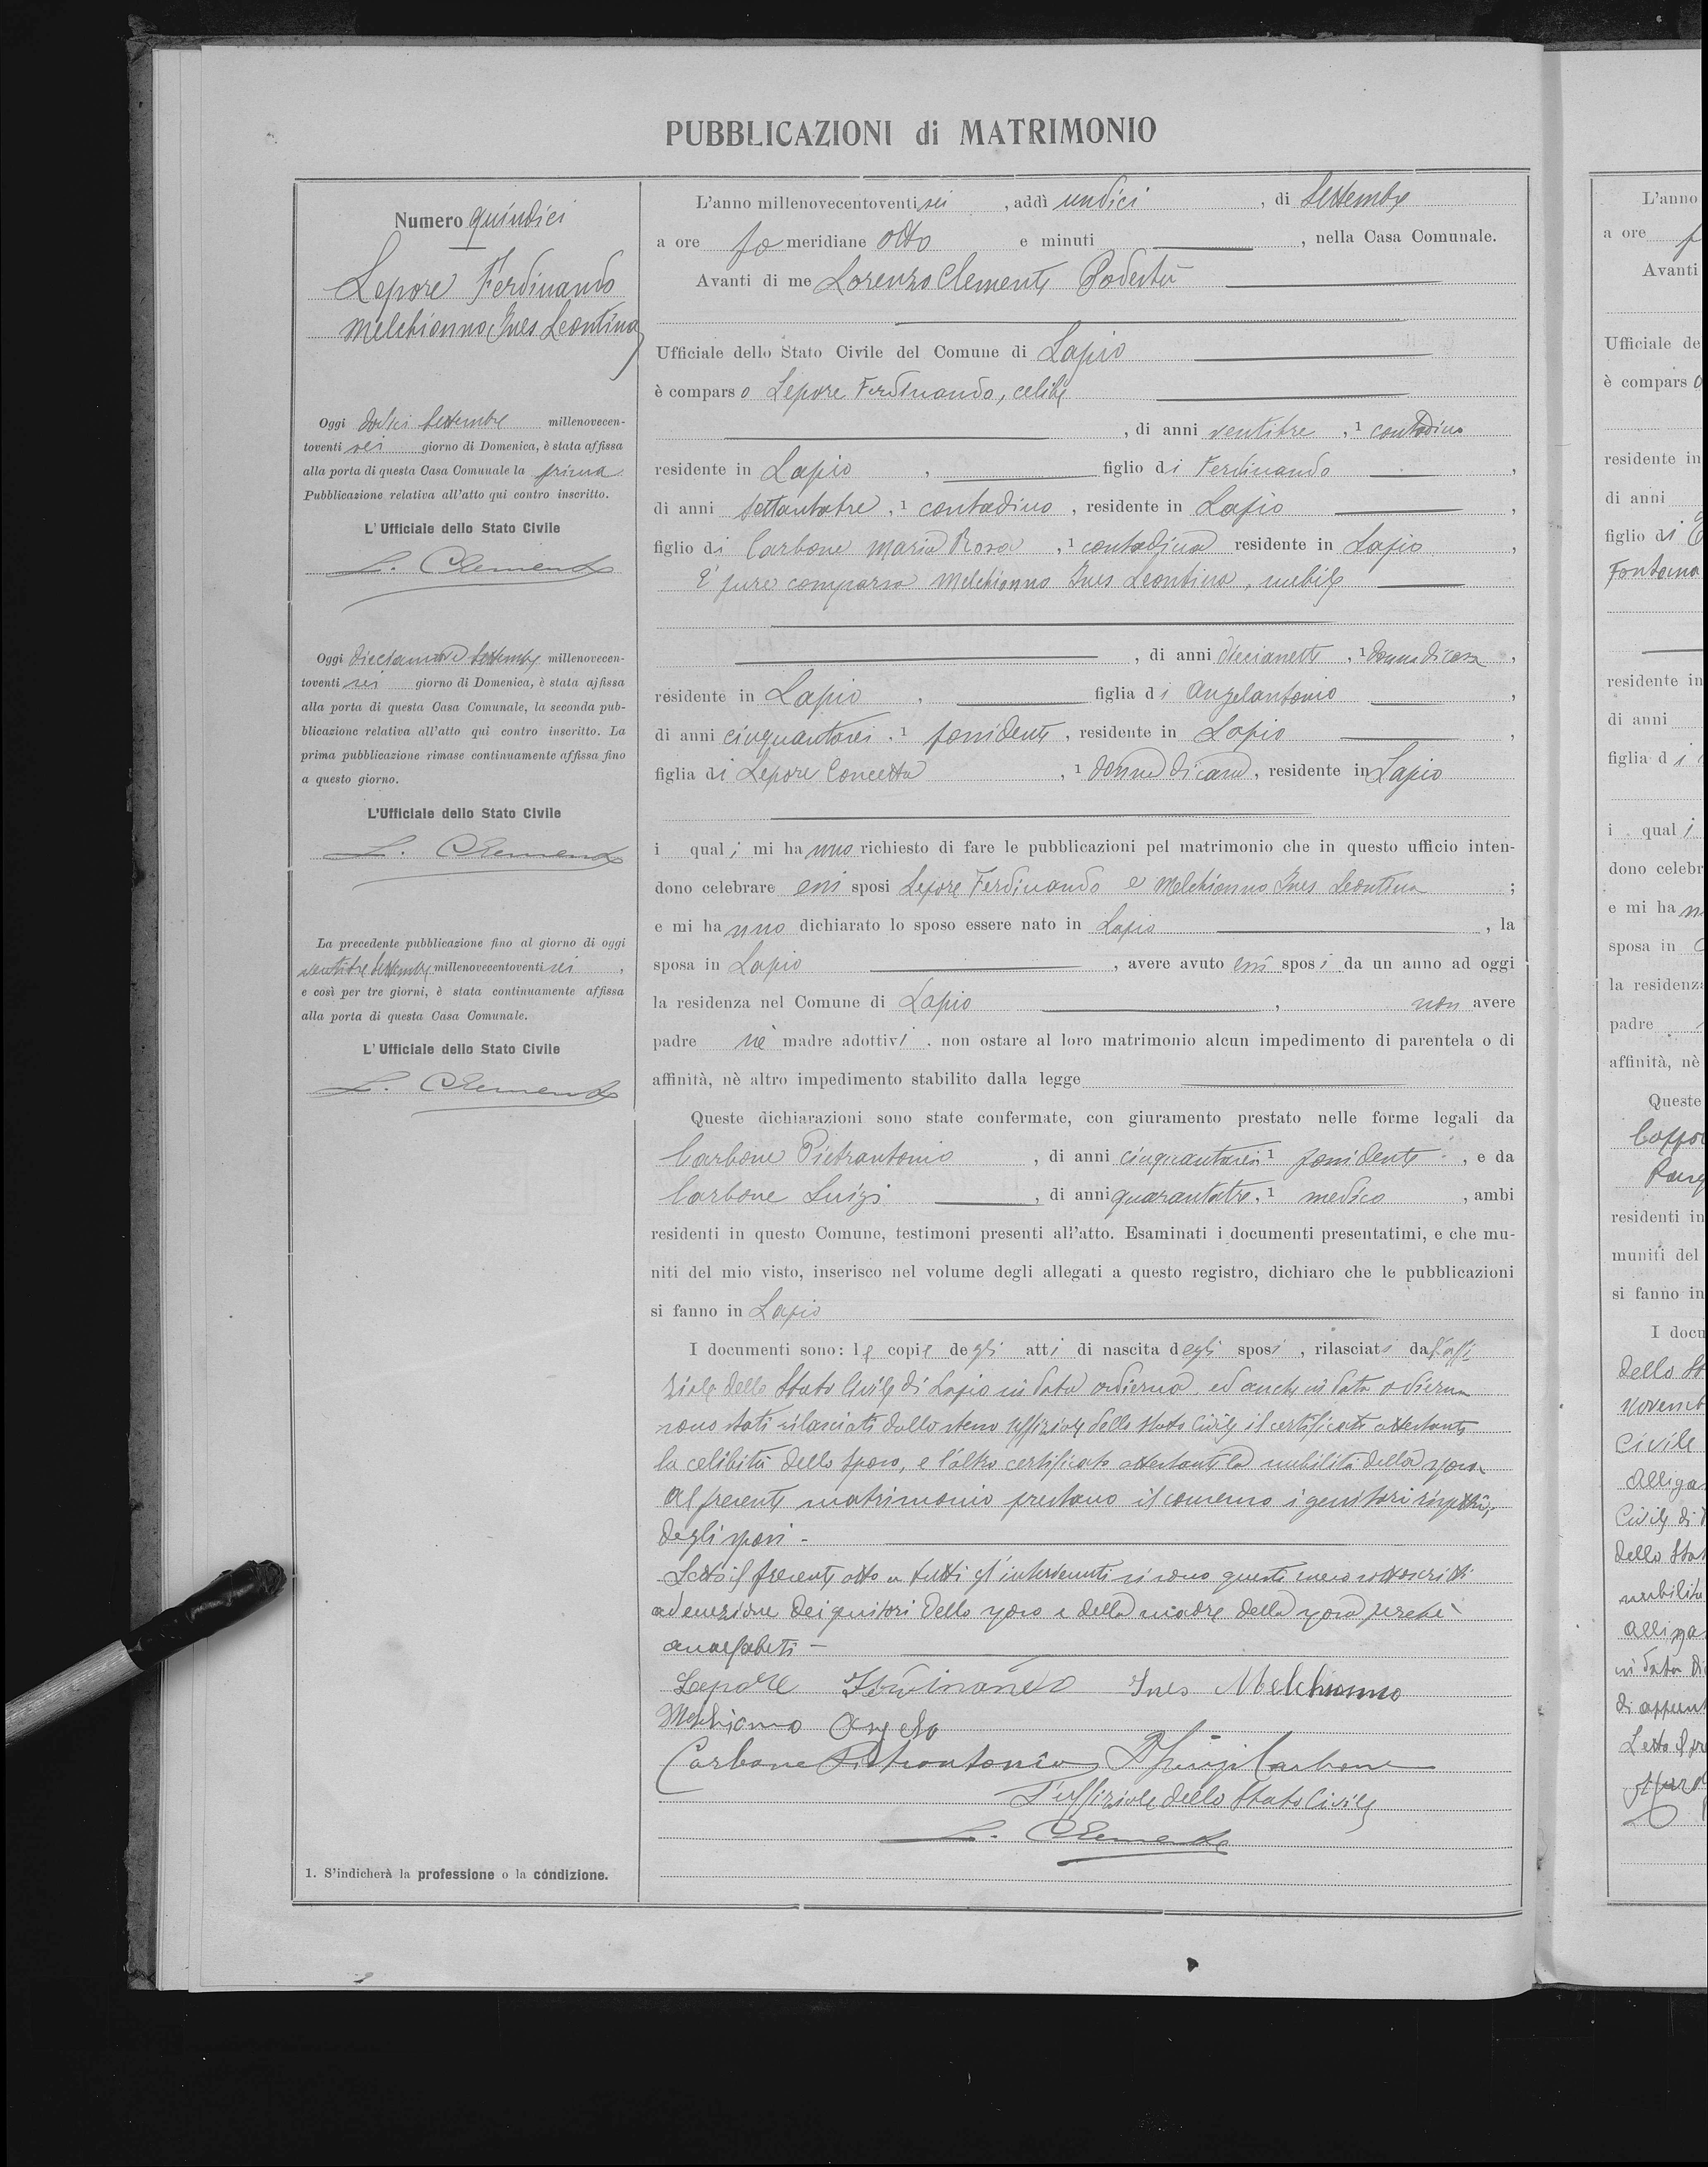 PUBBLICAZIONI di MATRIMONIO
Numero quindici
Lepore Ferdinando
Melchionno Ines Leontina
Oggi dodici Settembre millenovecen-
toventi sei giorno di Domenica, è stata affissa
alla porta di questa Casa Comunale la prima
Pubblicazione relativa all'atto qui contro inscritto.
L'Ufficiale dello Stato Civile
L. Clemente
Oggi diciannove Settembre millenovecen-
toventi sei giorno di Domenica, è stata affissa
alla porta di questa Casa Comunale, la seconda pub-
blicazione relativa all'atto qui contro inscritto. La
prima pubblicazione rimase continuamente affissa fino
a questo giorno.
L'Ufficiale dello Stato Civile
L. Clemente
La precedente pubblicazione fino al giorno di oggi
ventitre Settembre millenovecentoventi sei,
e così per tre giorni, è stata continuamente affissa
alla porta di questa Casa Comunale.
L'Ufficiale dello Stato Civile
L. Clemente
1. S'indicherà la professione o la condizione.
L'anno millenovecentoventi sei, addì undici, di Settembre
a ore po meridiane otto e minuti, nella Casa Comunale.
Avanti di me Lorenzo Clemente Podestà
Ufficiale dello Stato Civile del Comune di Lapio
è compars o Lepore Ferdinando, celibe
, di anni ventitre, 1 contadino
residente in Lapio, figlio di Ferdinando,
di anni settantatre, 1 contadino, residente in Lapio,
figlio di Carbone Maria Rosa, 1 contadina residente in Lapio,
È pure comparsa Melchionno Ines Leontina, nubile
, di anni diecianette, 1 donna di casa,
residente in Lapio, figlia di Angelantonio,
di anni cinquantasei, 1 possidente, residente in Lapio,
figlia di Lepore Concetta, 1 donna di casa, residente in Lapio
i quali mi ha nno richiesto di fare le pubblicazioni pel matrimonio che in questo ufficio inten-
dono celebrare essi sposi Lepore Ferdinando e Melchionno Ines Leontina;
e mi ha nno dichiarato lo sposo essere nato in Lapio, la
sposa in Lapio, avere avuto essi sposi da un anno ad oggi
la residenza nel Comune di Lapio, non avere
padre nè madre adottivi, non ostare al loro matrimonio alcun impedimento di parentela o di
affinità, nè altro impedimento stabilito dalla legge
Queste dichiarazioni sono state confermate, con giuramento prestato nelle forme legali da
Carbone Pietrantonio, di anni cinquantasei 1 possidente, e da
Carbone Luigi, di anni quarantatre, 1 medico, ambi
residenti in questo Comune, testimoni presenti all'atto. Esaminati i documenti presentatimi, e che mu-
niti del mio visto, inserisco nel volume degli allegati a questo registro, dichiaro che le pubblicazioni
si fanno in Lapio
I documenti sono: le copie degli atti di nascita degli sposi, rilasciati dall'uffi
ziale dello Stato Civile di Lapio in data odierna, ed anche in data odierna
sono stati rilasciati dallo stesso Uffiziale dello Stato Civile il certificato attestante
la celibità dello sposo, e l'altro certificato attestante la nubilità della sposa.
Al presente matrimonio prestano il consenso i genitori rispettivi
degli sposi -
Letto il presente atto a tutti gl'intervenuti si sono questi meco sottoscritti
ad eccezione dei genitori dello sposo e della madre della sposa perchè
analfabeti -
Lepore Ferdinando Ines Melchionno
Melchionno Angelo
Carbone Pietrantonio Dr Luigi Carbone
L'uffiziale dello Stato Civile
L. Clemente
L'anno
a ore
Avanti
Ufficiale de
è compars o
residente in
di anni
figlio di
Fontana
residente in
di anni
figlia di
i quali
dono celebr
e mi ha
sposa in
la residenza
padre
affinità, nè
Queste
residenti in
muniti del
si fanno in
I docu
dello St
Novemb
Civile
Alliga
Civile di
dello Stat
nubilità
in data
Letto il pre